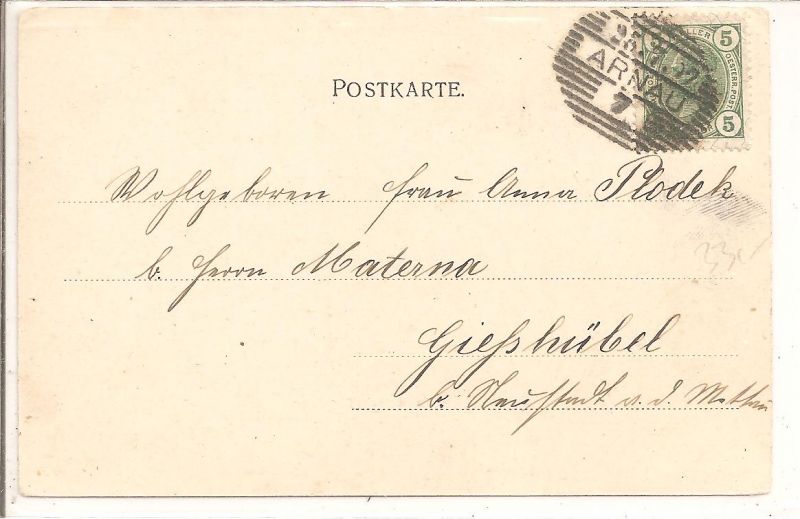 5
HELLER
OESTERR. POST
ARNAU
5
7
POSTKARTE.
Wohlgeboren Frau Anna Plodek
b. Herrn Materna
Giesshübel
b. Neustadt a. d. Mettau